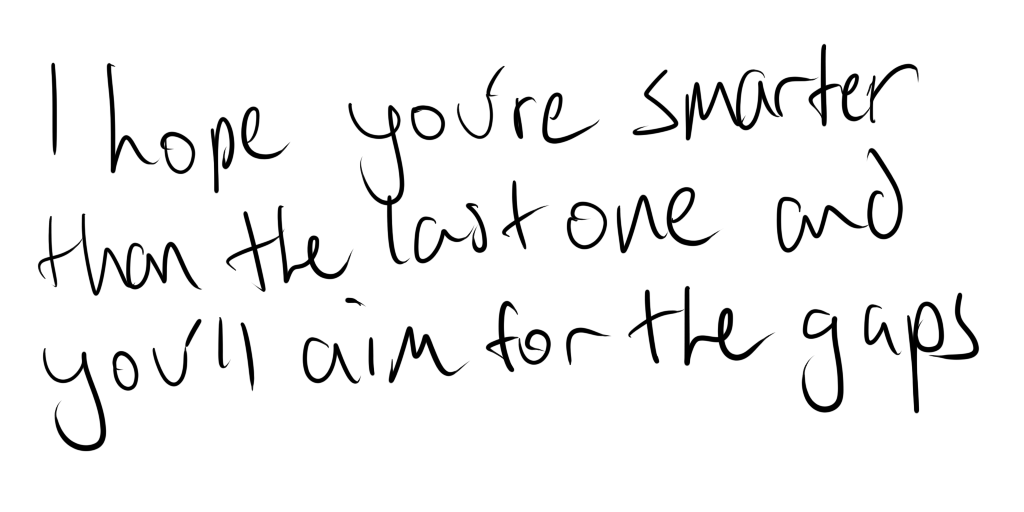 I hope you're smarter
than the last one and
you'll aim for the gaps